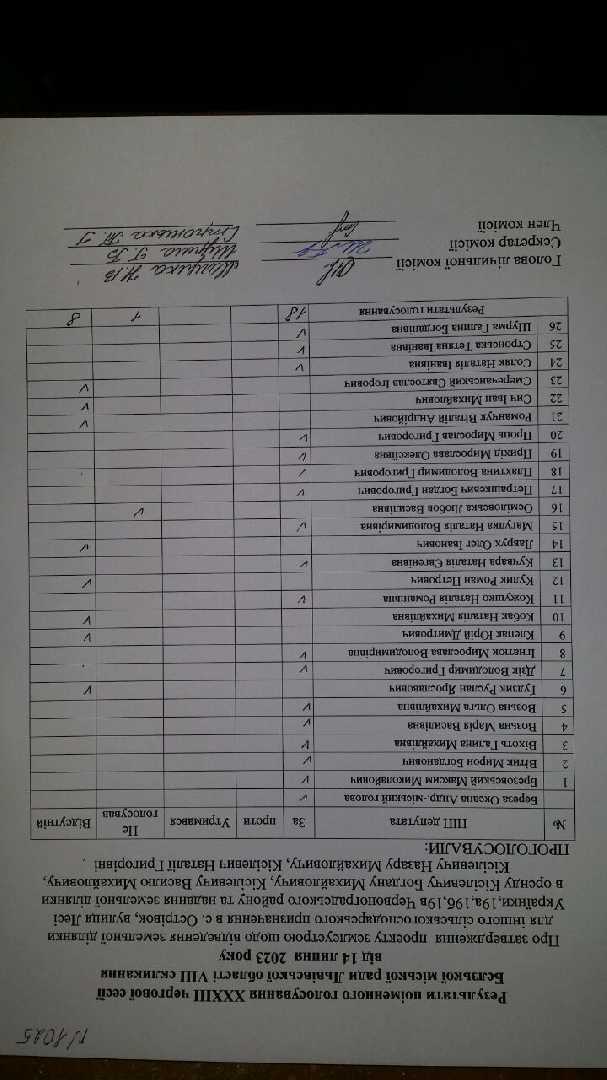 N 1025
Результати поіменного голосування XXXIII чергової сесії
Белзької міської ради Львівської області VIII скликання
від 14 липня 2023 року
Про затвердження проєкту землеустрою щодо відведення земельної ділянки
для іншого сільськогосподарського призначення в с. Острівок, вулиця Лесі
Українки,19а,19б,19в Червоноградського району та надання земельної ділянки
в оренду Кісілевичу Богдану Михайловичу, Кісілевичу Василю Михайловичу,
Кісілевичу Назару Михайловичу, Кісілевич Наталії Григорівні .
ПРОГОЛОСУВАЛИ:
№ ПІП депутата За проти Утримався Не голосував Відсутній
Береза Оксана Андр.-міський голова ✓
1 Брезовський Максим Миколайович ✓
2 Вітів Мирон Богданович ✓
3 Віхоть Галина Михайлівна ✓
4 Возьна Марія Василівна ✓
5 Возьна Ольга Михайлівна ✓
6 Гудзик Руслан Ярославович ✓
7 Дзік Володимир Григорович ✓
8 Ігнатюк Мирослава Володимирівна ✓
9 Клепак Юрій Дмитрович ✓
10 Кобак Наталія Михайлівна ✓
11 Кожушко Наталія Романівна ✓
12 Кулик Роман Петрович ✓
13 Кучвара Наталія Євгенівна ✓
14 Лаврух Олег Іванович ✓
15 Магулка Наталія Володимирівна ✓
16 Осміловська Любов Василівна ✓
17 Петрашкевич Богдан Григорович ✓
18 Пляхтина Володимир Григорович ✓
19 Прихід Мирослава Олексіївна ✓
20 Проць Мирослав Григорович ✓
21 Романчук Віталій Андрійович ✓
22 Сич Іван Михайлович ✓
23 Смеречанський Святослав Ігорович ✓
24 Соляк Наталія Іванівна ✓
25 Строцька Тетяна Іванівна ✓
26 Шурма Галина Богданівна ✓
Результати голосування 18 1 8
Голова лічильної комісії
Секретар комісії Шурма Г. Б
Член комісії